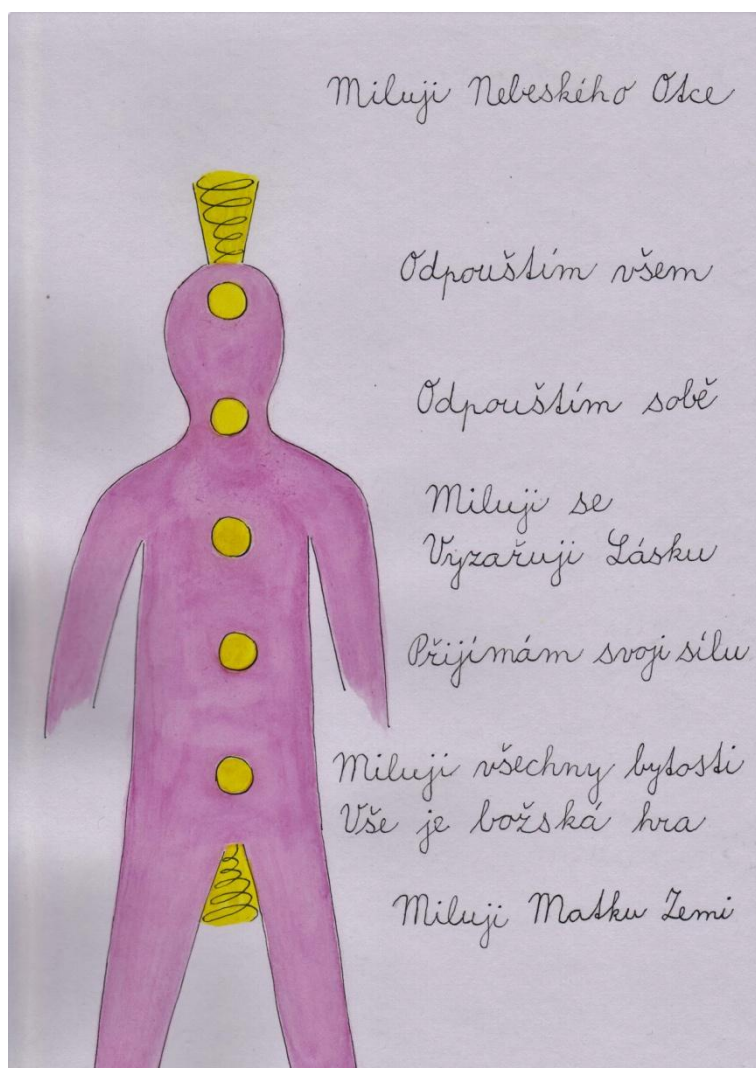 Miluji Nebeského Otce
Odpouštím všem
Odpouštím sobě
Miluji se
Vyzařuji Lásku
Přijímám svoji sílu
Miluji všechny bytosti
Vše je božská hra
Miluji Matku Zemi